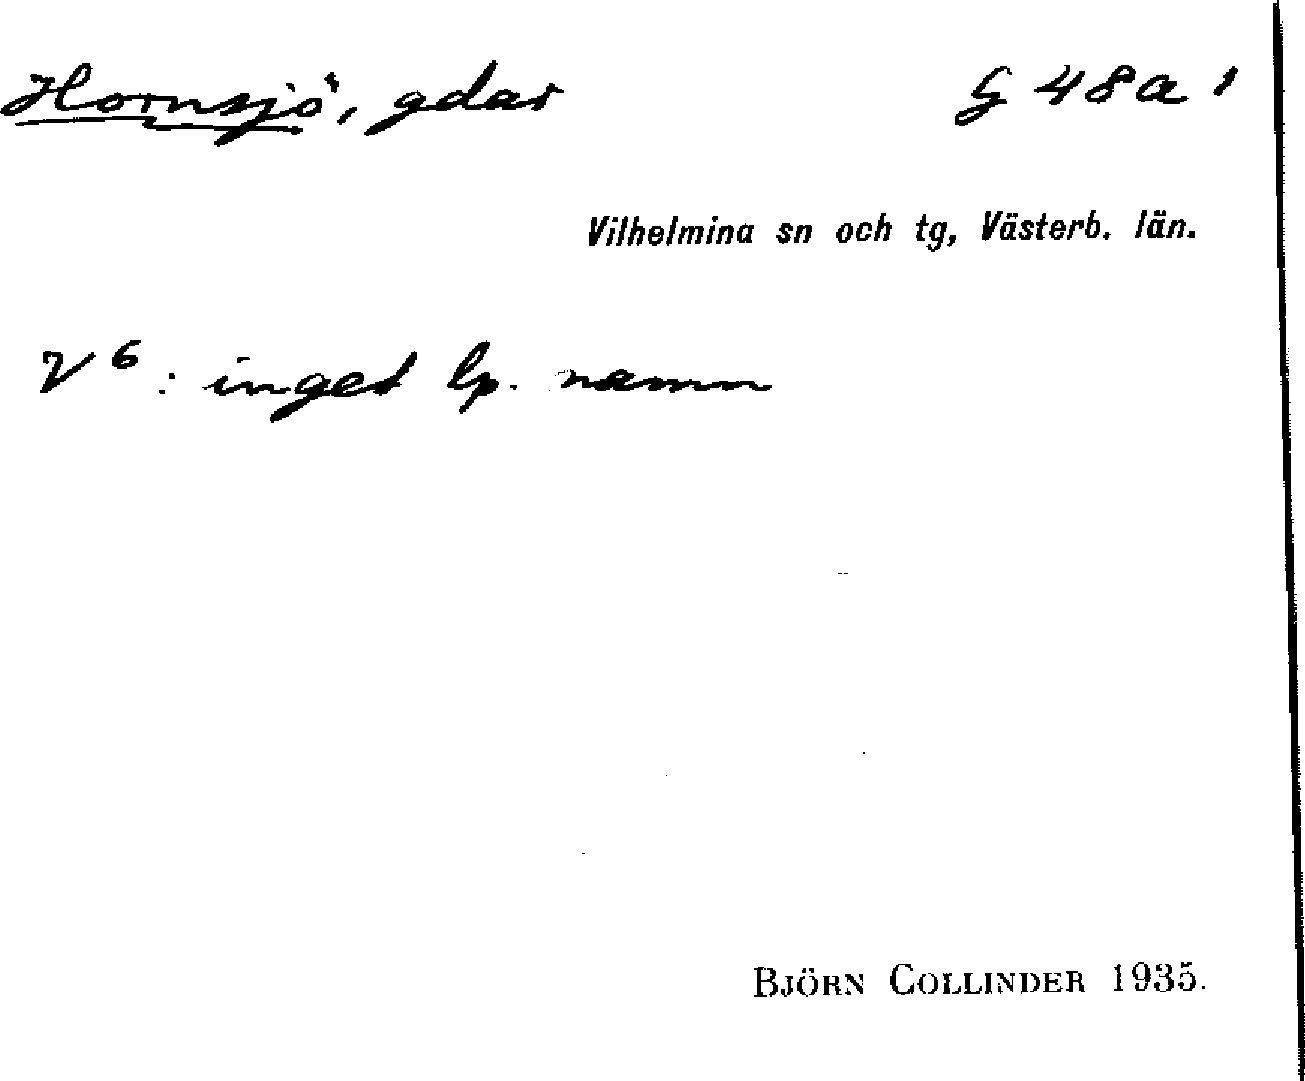 Hornsjö, gdar § 48a 1
Vilhelmina sn och tg, Västerb. län.
V 6 : inget lp. namn
BJÖRN COLLINDER 1935.